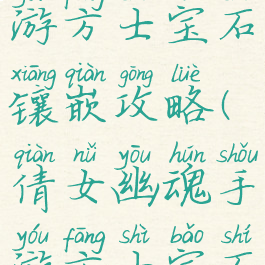 游方士宝石
xiāng qiàn gōng lüè
镶嵌攻略(
qiàn nǚ yōu hún shǒu
倩女幽魂手
yóu fāng shì bǎo shí
游方士宝石